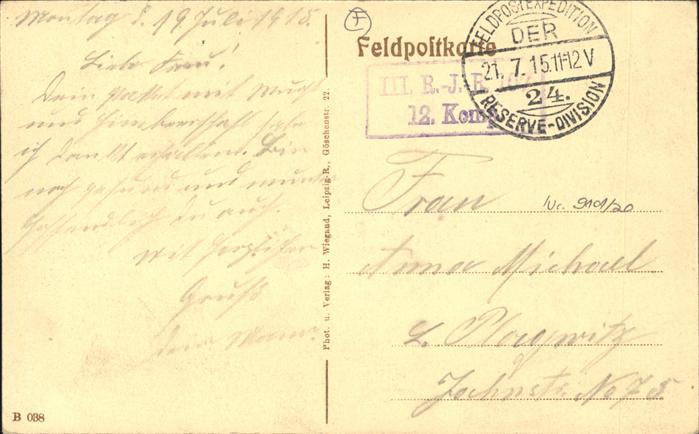 Montag d. 19 Juli 1915.
Liebe Frau!
Dein Paket mit Wurst
und Himbeersaft habe
ich dankt erhalten. Bin
noch gesund und munter
hoffentlich Du auch.
Mit herzlichen
Gruß
Dein Mann.
B 038
Phot. u. Verlag: H. Wiegand, Leipzig-R., Göschenstr. 22.
F
Feldpostkarte
FELDPOSTEXPEDITION
DER
21.7.15.11-12V
24.
RESERVE-DIVISION
III. R.-J.-R.
12. Komp.
Frau
Nr. 9101/20
Anna Michael
L. Plagwitz
No 75